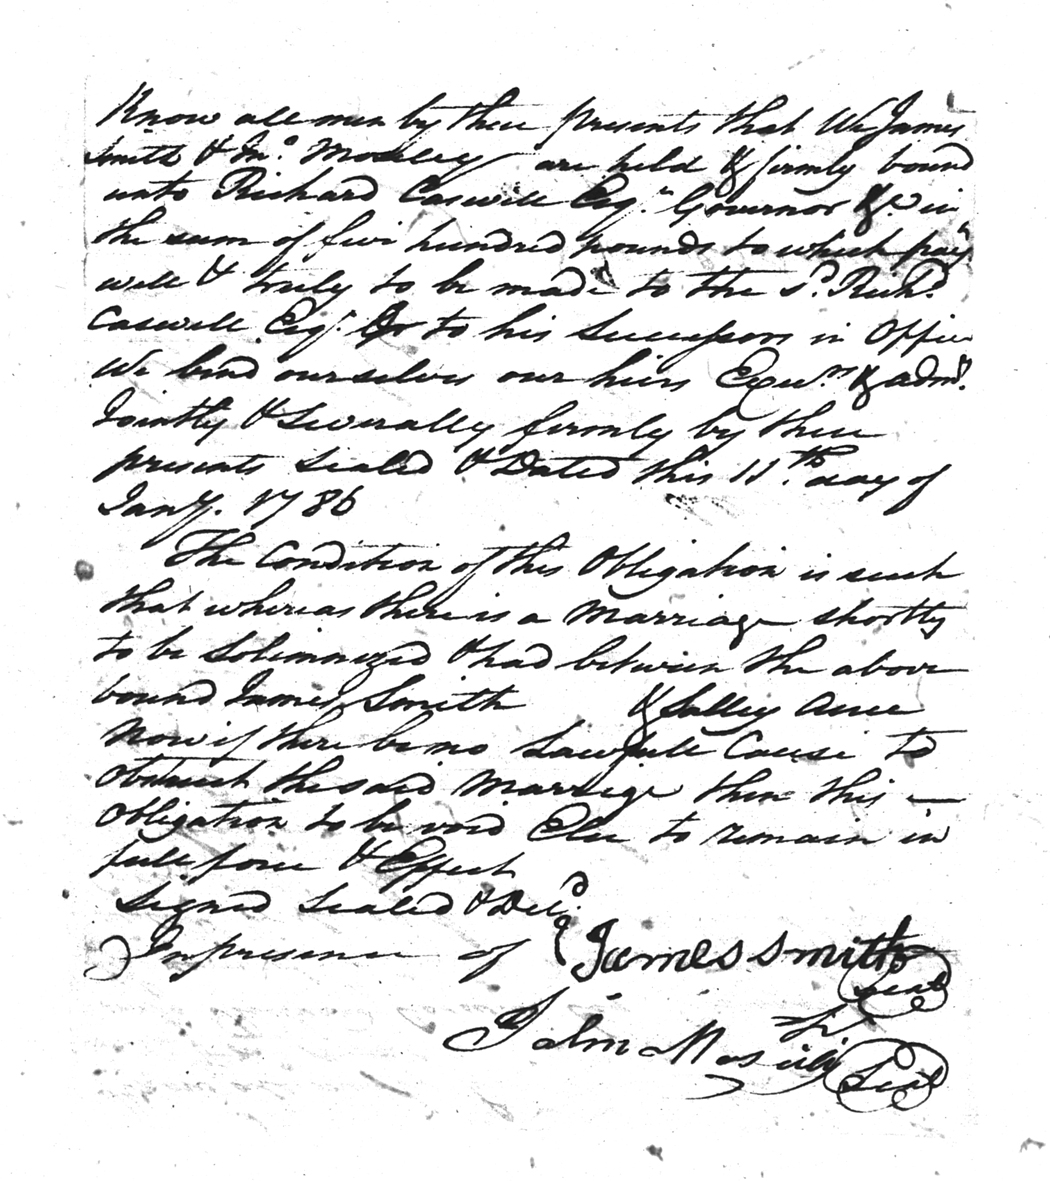 Know all men by these presents that We James
Smith & Jno. Moseley are held & firmly bound
unto Richard Caswell Esqr. Governor &c. in
the sum of five hundred pounds to which paym
well & truly to be made to the sd. Richd.
Caswell Esqr. Or to his Successors in Office
We bind ourselves our heirs Execurs & admrs.
Jointly & Severally firmly by these
presents Sealed & Dated this 11th. day of
Jany. 1786
The Condition of this Obligation is such
that whereas there is a Marriage shortly
to be Solemnized & had between the above
bound James Smith & Salley
Now if there be no Lawfull Cause to
Obstruct the said Marriage then this —
Obligation to be void Else to remain in
full force & Effect
Signed Sealed & Deld.
In presence of
James Smith Seal
Seal